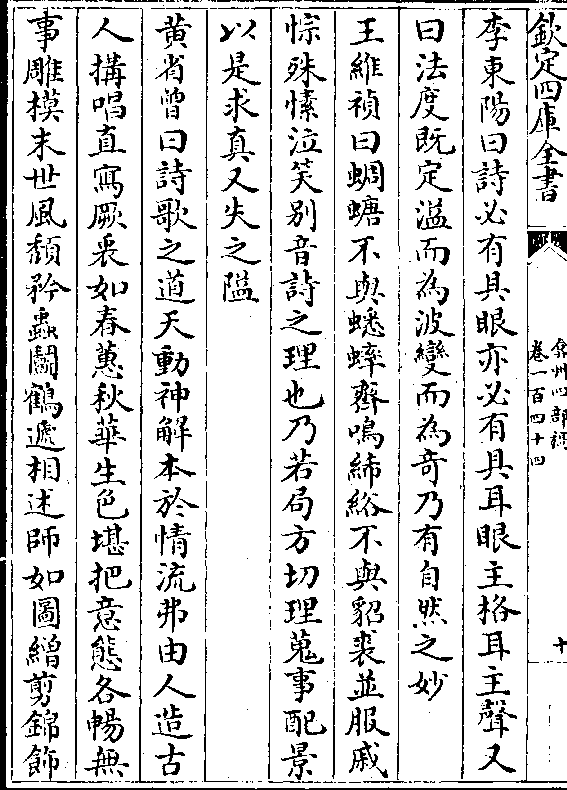 欽定四庫全書
弇州四部稿
卷一百四十四
十
李東陽曰詩必有具眼亦必有具耳眼主格耳主聲又
曰法度既定溢而為波變而為竒乃有自然之妙
王維禎曰蜩螗不與蟋蟀齊鳴絺綌不與貂裘並服戚
悰殊愫泣笑别音詩之理也乃若局方切理蒐事配景
以是求真又失之隘
黄省曾曰詩歌之道天動神解本於情流弗由人造古
人搆唱直寫厥衷如春蕙秋華生色堪把意態各暢無
事雕模末世風頽矜蟲鬬鶴遞相述師如圖繒剪錦飾